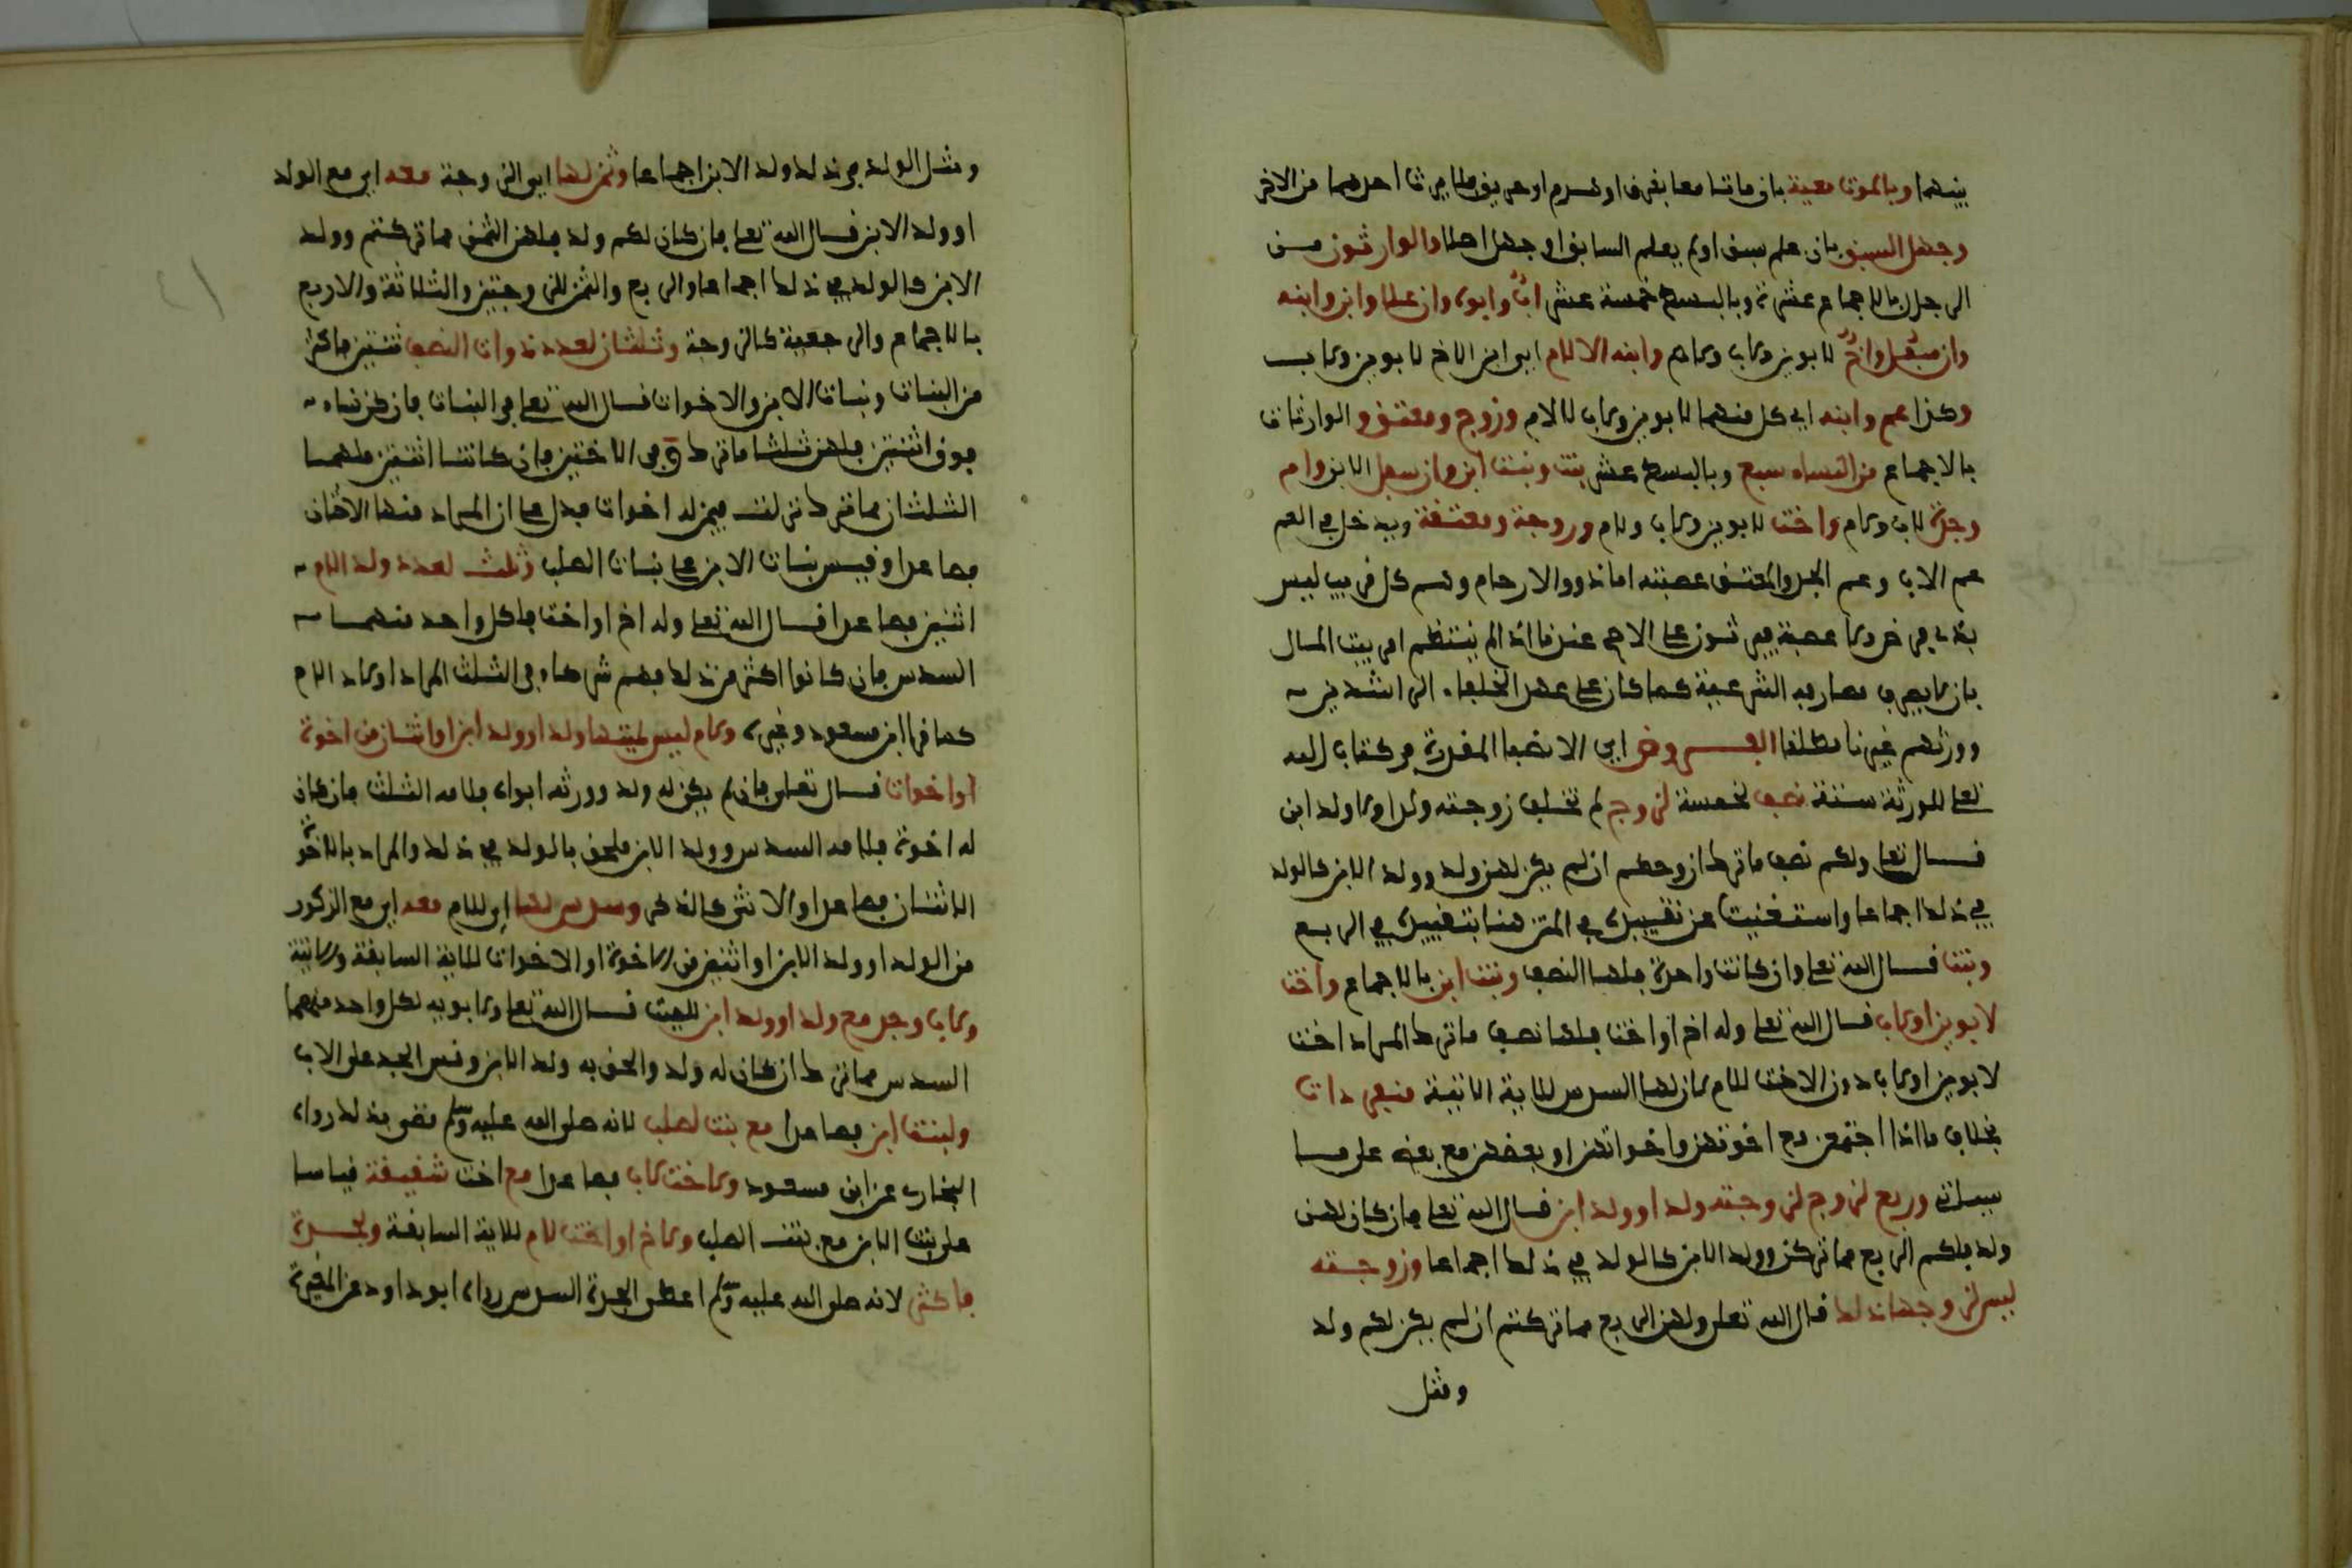 بينهما وبالموت معية بان ماتا معا بغرق او هدم او حريق فلا يرث احدهما من الاخر
وجهل السبق بان علم سبق او لم يعلم السابق او جهل اصلا والوارثون من
الرجال بالاجماع عشرة وبالبسط خمسة عشر اب وابوه وان علا وابن وابنه
وان سفل واخ لابوين ولاب ولام وابنه الا للام اي ابن الاخ لابوين ولاب
وكذا عم وابنه اي كل منهما لابوين ولاب لا لام وزوج ومعتق والوارثات
بالاجماع من النساء سبع وبالبسط عشر بنت وبنت ابن وان سفل الابن وام
وجدة لاب ولام واخت لابوين ولاب ولام وزوجة ومعتقة ويدخل في العم
عم الاب وعم الجد والمعتق عصبته اما ذوو الارحام وهم كل قريب ليس
بذي فرض ولا عصبة فيرثون على الاصح عندنا اذا لم ينتظم امر بيت المال
بان لا يصرف مصارفه الشرعية كما كان على عهد الخلفاء الراشدين
وورثهم غيرنا مطلقا الفروض اي الانصبا المقدرة في كتاب الله
تعلى للورثة ستة نصف لخمسة لزوج لم تخلف زوجته ولدا ولا ولد ابن
قال تعلى ولكم نصف ما ترك ازوجكم ان لم يكن لهن ولد وولد الابن كالولد
في ذلك اجماعا واستغنيت عن تقييده في المتن هنا بتقييده في الربع
وبنت قال الله تعلى وان كانت واحدة فلها النصف وبنت ابن بالاجماع واخت
لابوين او لاب قال الله تعلى وله اخ او اخت فلها نصف ما ترك المراد اخت
لابوين او لاب دون الاخت للام لان لها السدس للاية الاتية منفردات
بخلاف ما اذا اجتمعن مع اخوتهن واخواتهن او بعضهن مع بعض على ما
سياتي وربع لزوج لزوجته ولد او ولد ابن قال الله تعلى فان كان لهن
ولد فلكم الربع مما تركن وولد الابن كالولد في ذلك اجماعا وزوجته
ليس لزوجها ذلك قال الله تعلى ولهن الربع مما تركتم ان لم يكن لكم ولد
ومثل
ومثل الولد في ذلك ولد الابن اجماعا وثمن لها اي الزوجة معه اي مع الولد
او ولد الابن قال الله تعلى فان كان لكم ولد فلهن الثمن مما تركتم وولد
الابن كالولد في ذلك اجماعا والربع والثمن للزوجتين والثلاثة والاربع
بالاجماع والرجعية كالزوجة وثلثان لعدد ذوات النصف ثنتين فاكثر
من البنات وبنات الابن والاخوات قال الله تعلى في البنات فان كن نساء
فوق اثنتين فلهن ثلثا ما ترك وفي الاختين فان كانتا اثنتين فلهما
الثلثان مما ترك نزلت فيمن له اخوات فدل على ان المراد منها الاختان
فصاعدا وقيس بنات الابن على بنات الصلب وثلث لعدد ولد الام
اثنين فصاعدا قال الله تعلى وله اخ او اخت فلكل واحد منهما
السدس فان كانوا اكثر من ذلك فهم شركاء في الثلث المراد اولاد الام
كما قرا ابن مسعود وغيره ولام ليس لميتها ولد او ولد ابن او اثنان من اخوة
او اخوات قال تعلى فان لم يكن له ولد وورثه ابواه فلامه الثلث فان كان
له اخوة فلامه السدس وولد الابن ملحق بالولد في ذلك والمراد بالاخوة
الاثنان فصاعدا والانثى كالذكر وسدس لها اي للام معه اي مع المذكور
من الولد او ولد الابن او اثنين من الاخوة او الاخوات للاية السابقة والاتية
ولاب وجد مع ولد او ولد ابن للميت قال الله تعلى ولابويه لكل واحد منهما
السدس مما ترك ان كان له ولد والحق به ولد الابن وقيس الجد على الاب
ولبنت ابن فصاعدا مع بنت لصلب لانه صلى الله عليه وسلم قضى بذلك رواه
البخاري عن ابن مسعود ولاخت لاب فصاعدا مع اخت شقيقة قياسا
على بنت الابن مع بنت الصلب ولاخ او اخت لام للاية السابقة ولجدة
فاكثر لانه صلى الله عليه وسلم اعطى الجدة السدس رواه ابو داود عن المغيرة